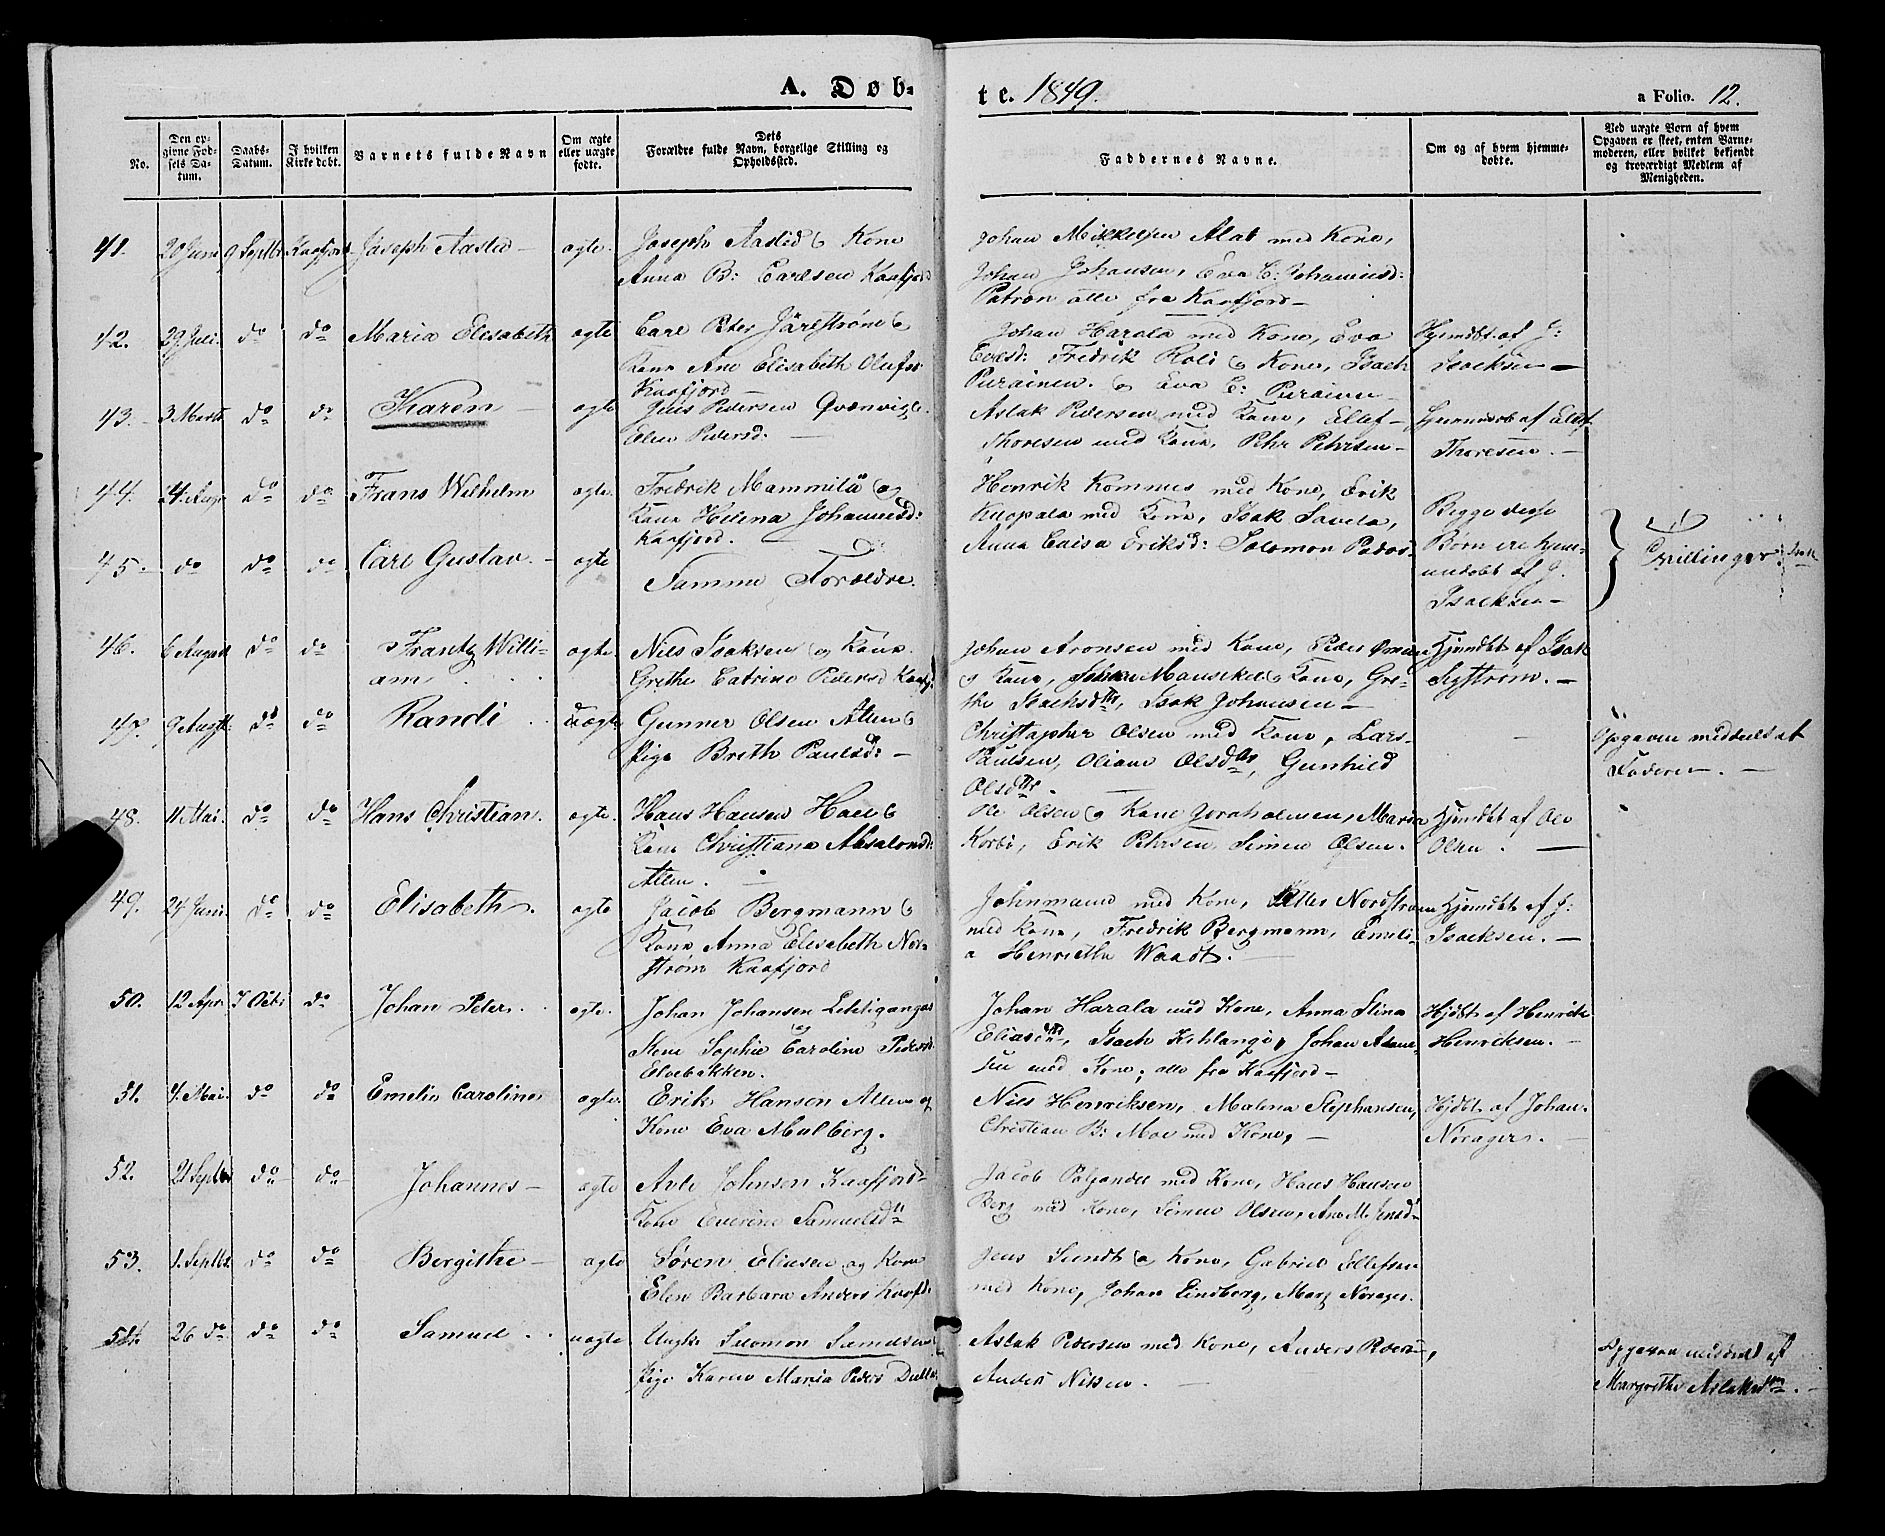 A. Døb-
te. 1849.
a Folio. 12.
No.
Den opgivne Fødsels Datum.
Daabs-Datum.
I hvilken Kirke døbt.
Barnets fulde Navn
Om ægte eller uægte fødte.
Dets Forældre fulde Navn, borgelige Stilling og Opholdssted.
Faddernes Navne.
Om og af hvem hjemmedøbte.
Ved uægte Børn af hvem Opgaven er skeet, enten Barnemoderen, eller hvilket bekjendt og troværdigt Medlem af Menigheden.
41. 20 Juni 9 Septbr Kaafjord Joseph Aasted ægte.
Joseph Aasted & Kone
Anna B: Carlsen Kaafjord
Johan Mikkelsen Alat med Kone,
Johan Johansen, Eva C: Johannesd:
Patron alle fra Kaafjord
42. 29 Juli do do Maria Elisabeth ægte
Carl Peter Jarlstrøm &
Kone Ane Elisabeth Olufs
Kaafjord
Johan Harala med Kone, Eva
Fredrik Kone, Isach
Purainen. og Eva C: Purainen
Hjemdbt af J:
Isacksen
43. 3 Marts do do Karen ægte
Jens Pedersen Qvænvig &
Elen Pedersd:
Aslak Pedersen med Kone, Ellef
Thoresen med Kone, Pehr Pehrsen
Hjemmedøbt af Ellef
Thoresen.
44. 24. Aug do do Frans Wilhelm ægte
Fredrik Mammila og
Kone Helena Johannesd:
Kaafjord.
Henrik Kommes med Kone, Erik
Kuopala med Kone, Isak Savela,
Anna Caisa Eriksd: Solomon Peders
Begge disse
Børn ere hjem-
medøbt af J.
Isacksen
Tvillinger
45. do do do Carl Gustav. ægte
Samme Forældre.
46. 6 August do do Frantz Willi-
am ægte
Nils Isaksen og Kone
Grethe Catrine Pedersd Kaafj:
Johan Aronsen med Kone, Peder
& Kone, Johan & Kone, Gre-
the Isachsdtr, Isak Johansen
Hjemdbt af Isak
47. 9 Augst. do do Randi uægte
Gunner Olsen Alten &
Pige Breth Paulsd:
Christopher Olsen med Kone, Lars
Paulsen, Oliane Olsdtr, Gunhild
Olsdtr.
Opgaven meddeelt af
Faderen.
48. 11 Mai. do do Hans Christian. ægte.
Hans Hansen &
Kone Christiana Absalonsd:
Alten.
Ole Olsen & Kone Joraholmen, Maria
Korbi, Erik Pehrsen, Simen Olsen.
Hjemdbt af Ole
Olsen.
49. 24 Juni. do do Elisabeth. ægte
Jacob Bergmann &
Kone Anna Elisabeth Nor-
strøm Kaafjord
Johnmand med Kone, Petter Nordstrøm
med Kone, Fredrik Bergmann, Emeli-
a Henriette Waadt.
Hjemdbt af J:
Isacksen.
50. 12 Apr. 7 Octbr do Johan Peter. ægte.
Johan Johansen
Sophie Caroline Pedersd.
Elvebakken.
Johan Harala med Kone, Anna Stina
Isach Kihlangi, Johan
sen med Kone; alle fra Kaafjord
Hjdbt af Henrik
Henriksen.
51. 4. Mai. do do Emelie Caroline ægte.
Erik Hansen Alten og
Kone Eva Mulberg.
Nils Henriksen, Malena Stephansen,
Christian B: Moe med Kone,
Hjdbt af Johan
Norager.
52. 21 Septbr do do Johannes ægte
Johnsen Kaafjord
Kone Everine Samuelsd
Jacob Paljandel med Kone, Hans Hansen
Berg med Kone, Simen Olsen, Ane M. Jensd
53. 1. Septbr. do do Bergithe ægte
Søren Eliesen og Kone
Elen Barbara Anders Kaafd.
Jens Sundt & Kone, Gabriel Ellefsen
med Kone, Johan Lindberg, Marg Norager.
54. 26 do. do do Samuel uægte
Ungk: Salomon Samuelsen
Pige Karen Maria Peders
Aslak Pedersen med Kone, Anders
Anders Nilsen.
Opgaven meddeelt af
Margrethe Aslaksdtr.